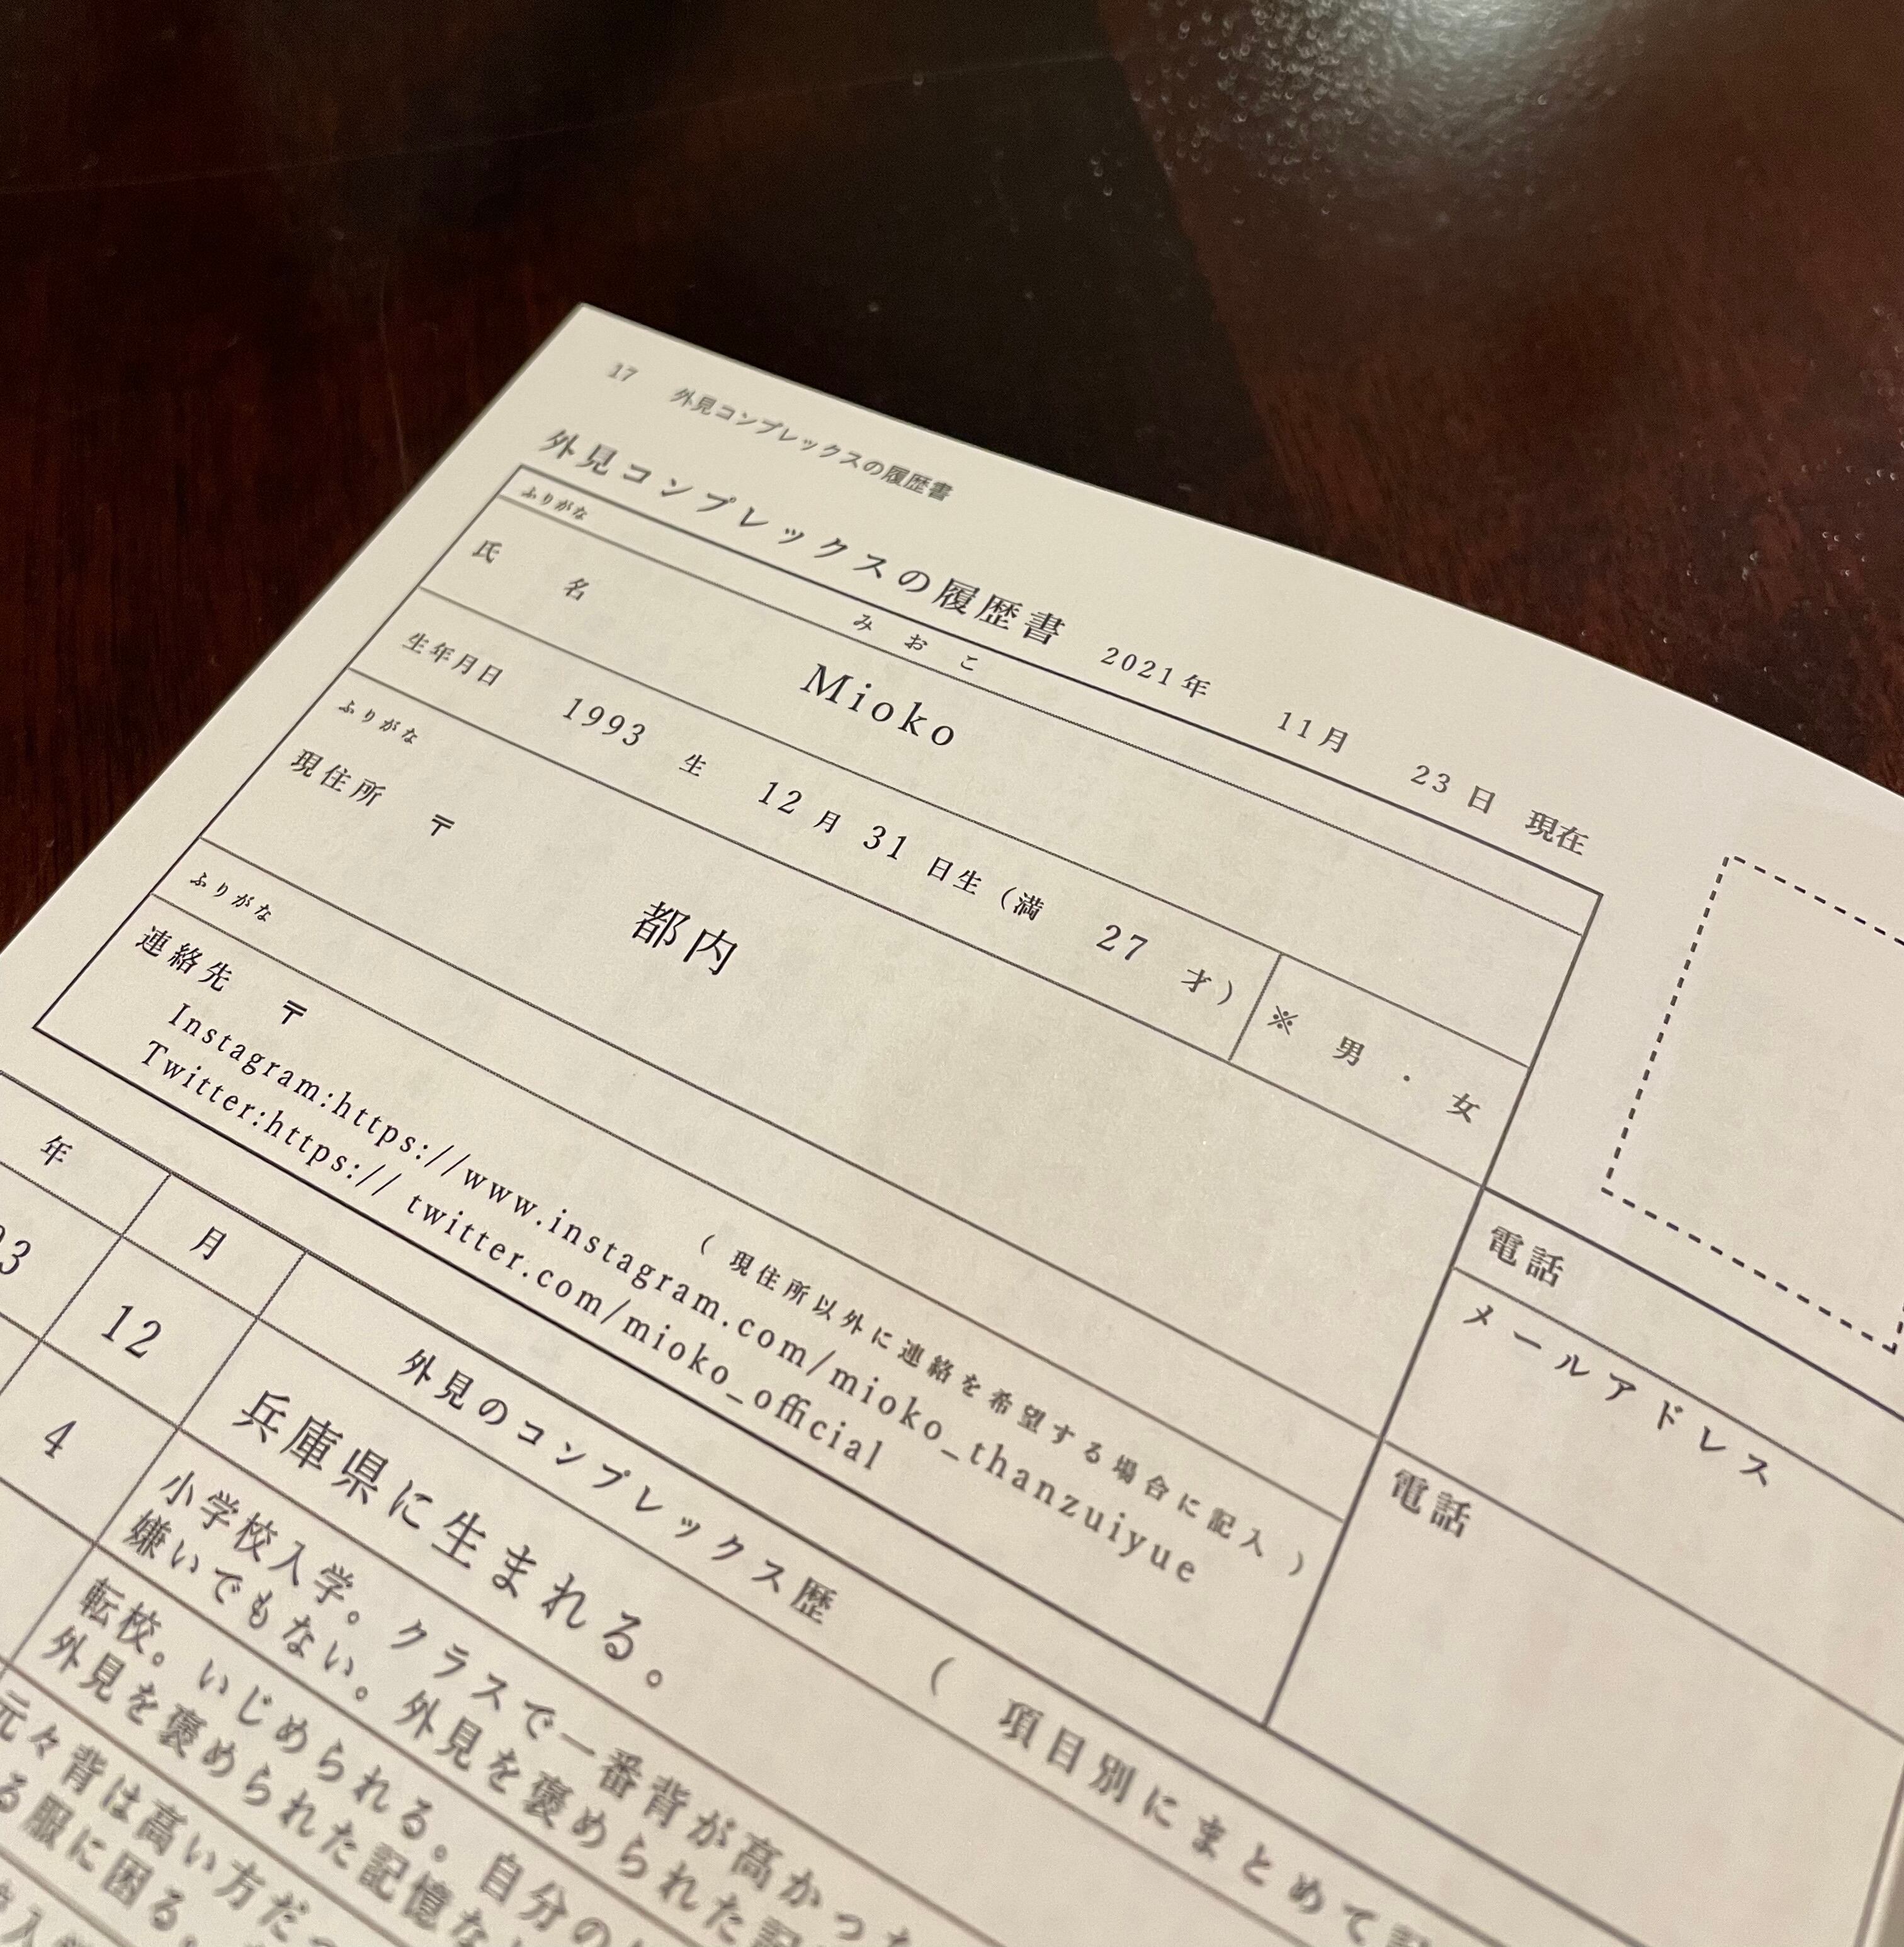 17 外見コンプレックスの履歴書
外見コンプレックスの履歴書 2021年 11月 23日 現在
ふりがな みおこ
氏名 Mioko
生年月日 1993 生 12月 31 日生(満 27 才)
※ 男・女
ふりがな
現住所 〒
都内
電話
メールアドレス
ふりがな
連絡先 〒
(現住所以外に連絡を希望する場合に記入)
Instagram:https://www.instagram.com/mioko_thanzuiyue
Twitter:https:// twitter.com/mioko_official
電話
年 月 外見のコンプレックス歴 ( 項目別にまとめて
12 兵庫県に生まれる。
4 小学校入学。クラスで一番背が高かった
嫌いでもない。外見を褒められた
転校。いじめられる。自分の
外見を褒められた記憶な
元々背は高い方だっ
る服に困る。